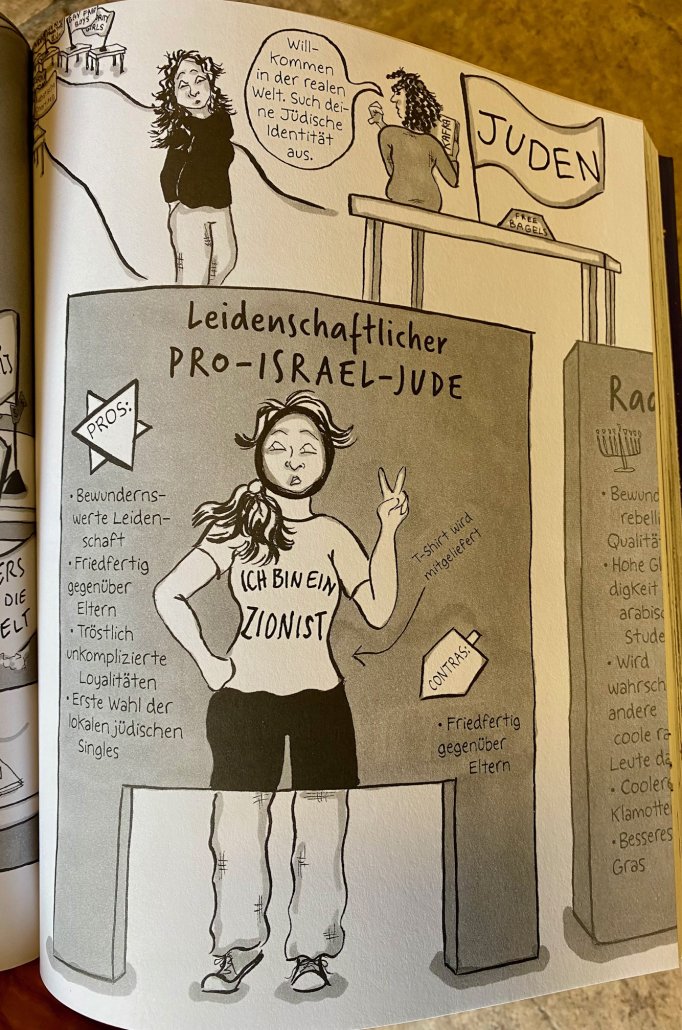 GAY FRAT
BOYS
GIRLS
Will-
kommen
in der realen
Welt. Such dei-
ne Jüdische
Identität
aus.
KAFKA
JUDEN
FREE
BAGELS
Leidenschaftlicher
PRO-ISRAEL-JUDE
PROS:
• Bewunderns-
werte Leiden-
schaft
• Friedfertig
gegenüber
Eltern
• Tröstlich
unkomplizierte
Loyalitäten
• Erste Wahl der
lokalen jüdischen
Singles
ICH BIN EIN
ZIONIST
T-Shirt wird
mitgeliefert
CONTRAS:
• Friedfertig
gegenüber
Eltern
Rad
• Bewund
rebelli
Qualitä
• Hohe Gl
digkeit
arabisc
Stude
• Wird
wahrsch
andere
coole ra
Leute da
• Coolere
Klamotte
• Besseres
Gras
ERS
DIE
ELT